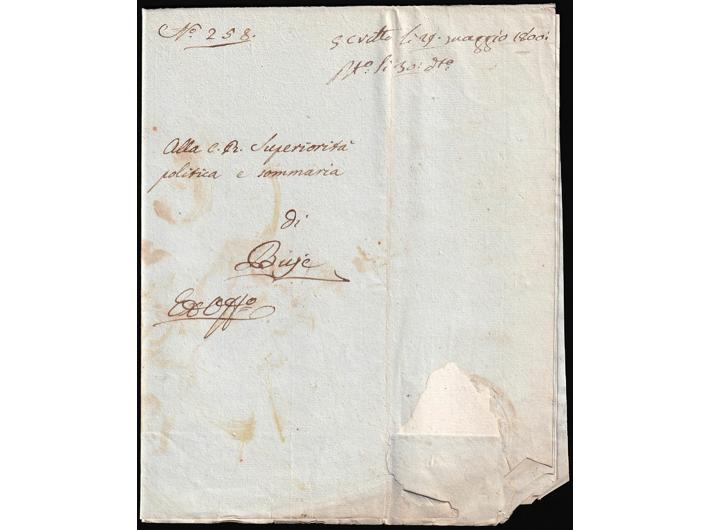 N.º 258.
scritto li 29. maggio 1800:
li 30: dto.
Alla C. R. Superiorità
politica e sommaria
di
Buje
Ex Offo